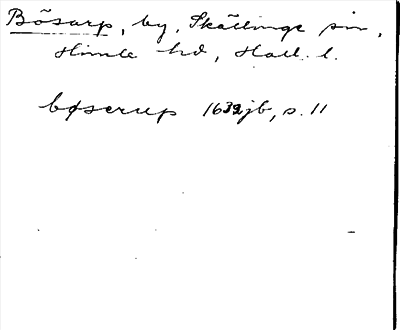 Bösarp, by, Skällinge sn,
Himle hd, Hall. l.
bøserup 1639jb, s. 11